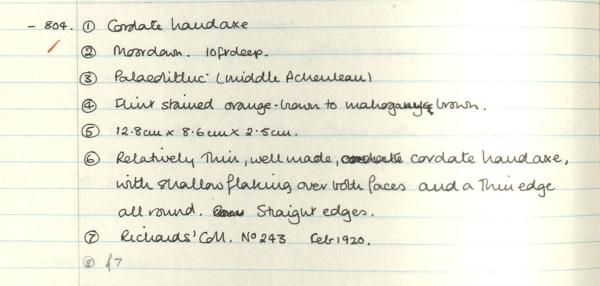 - 804. ① Cordate handaxe
② Moordown. 10ft deep.
③ Palaeolithic (middle Acheulean)
④ Flint stained orange-brown to mahogany brown.
⑤ 12.8cm x 8.6cm x 2.5cm.
⑥ Relatively thin, well made, cordate handaxe,
with shallow flaking over both faces and a thin edge
all round. Straight edges.
⑦ Richards' Coll. No 243 Feb 1920.
⑧ £7